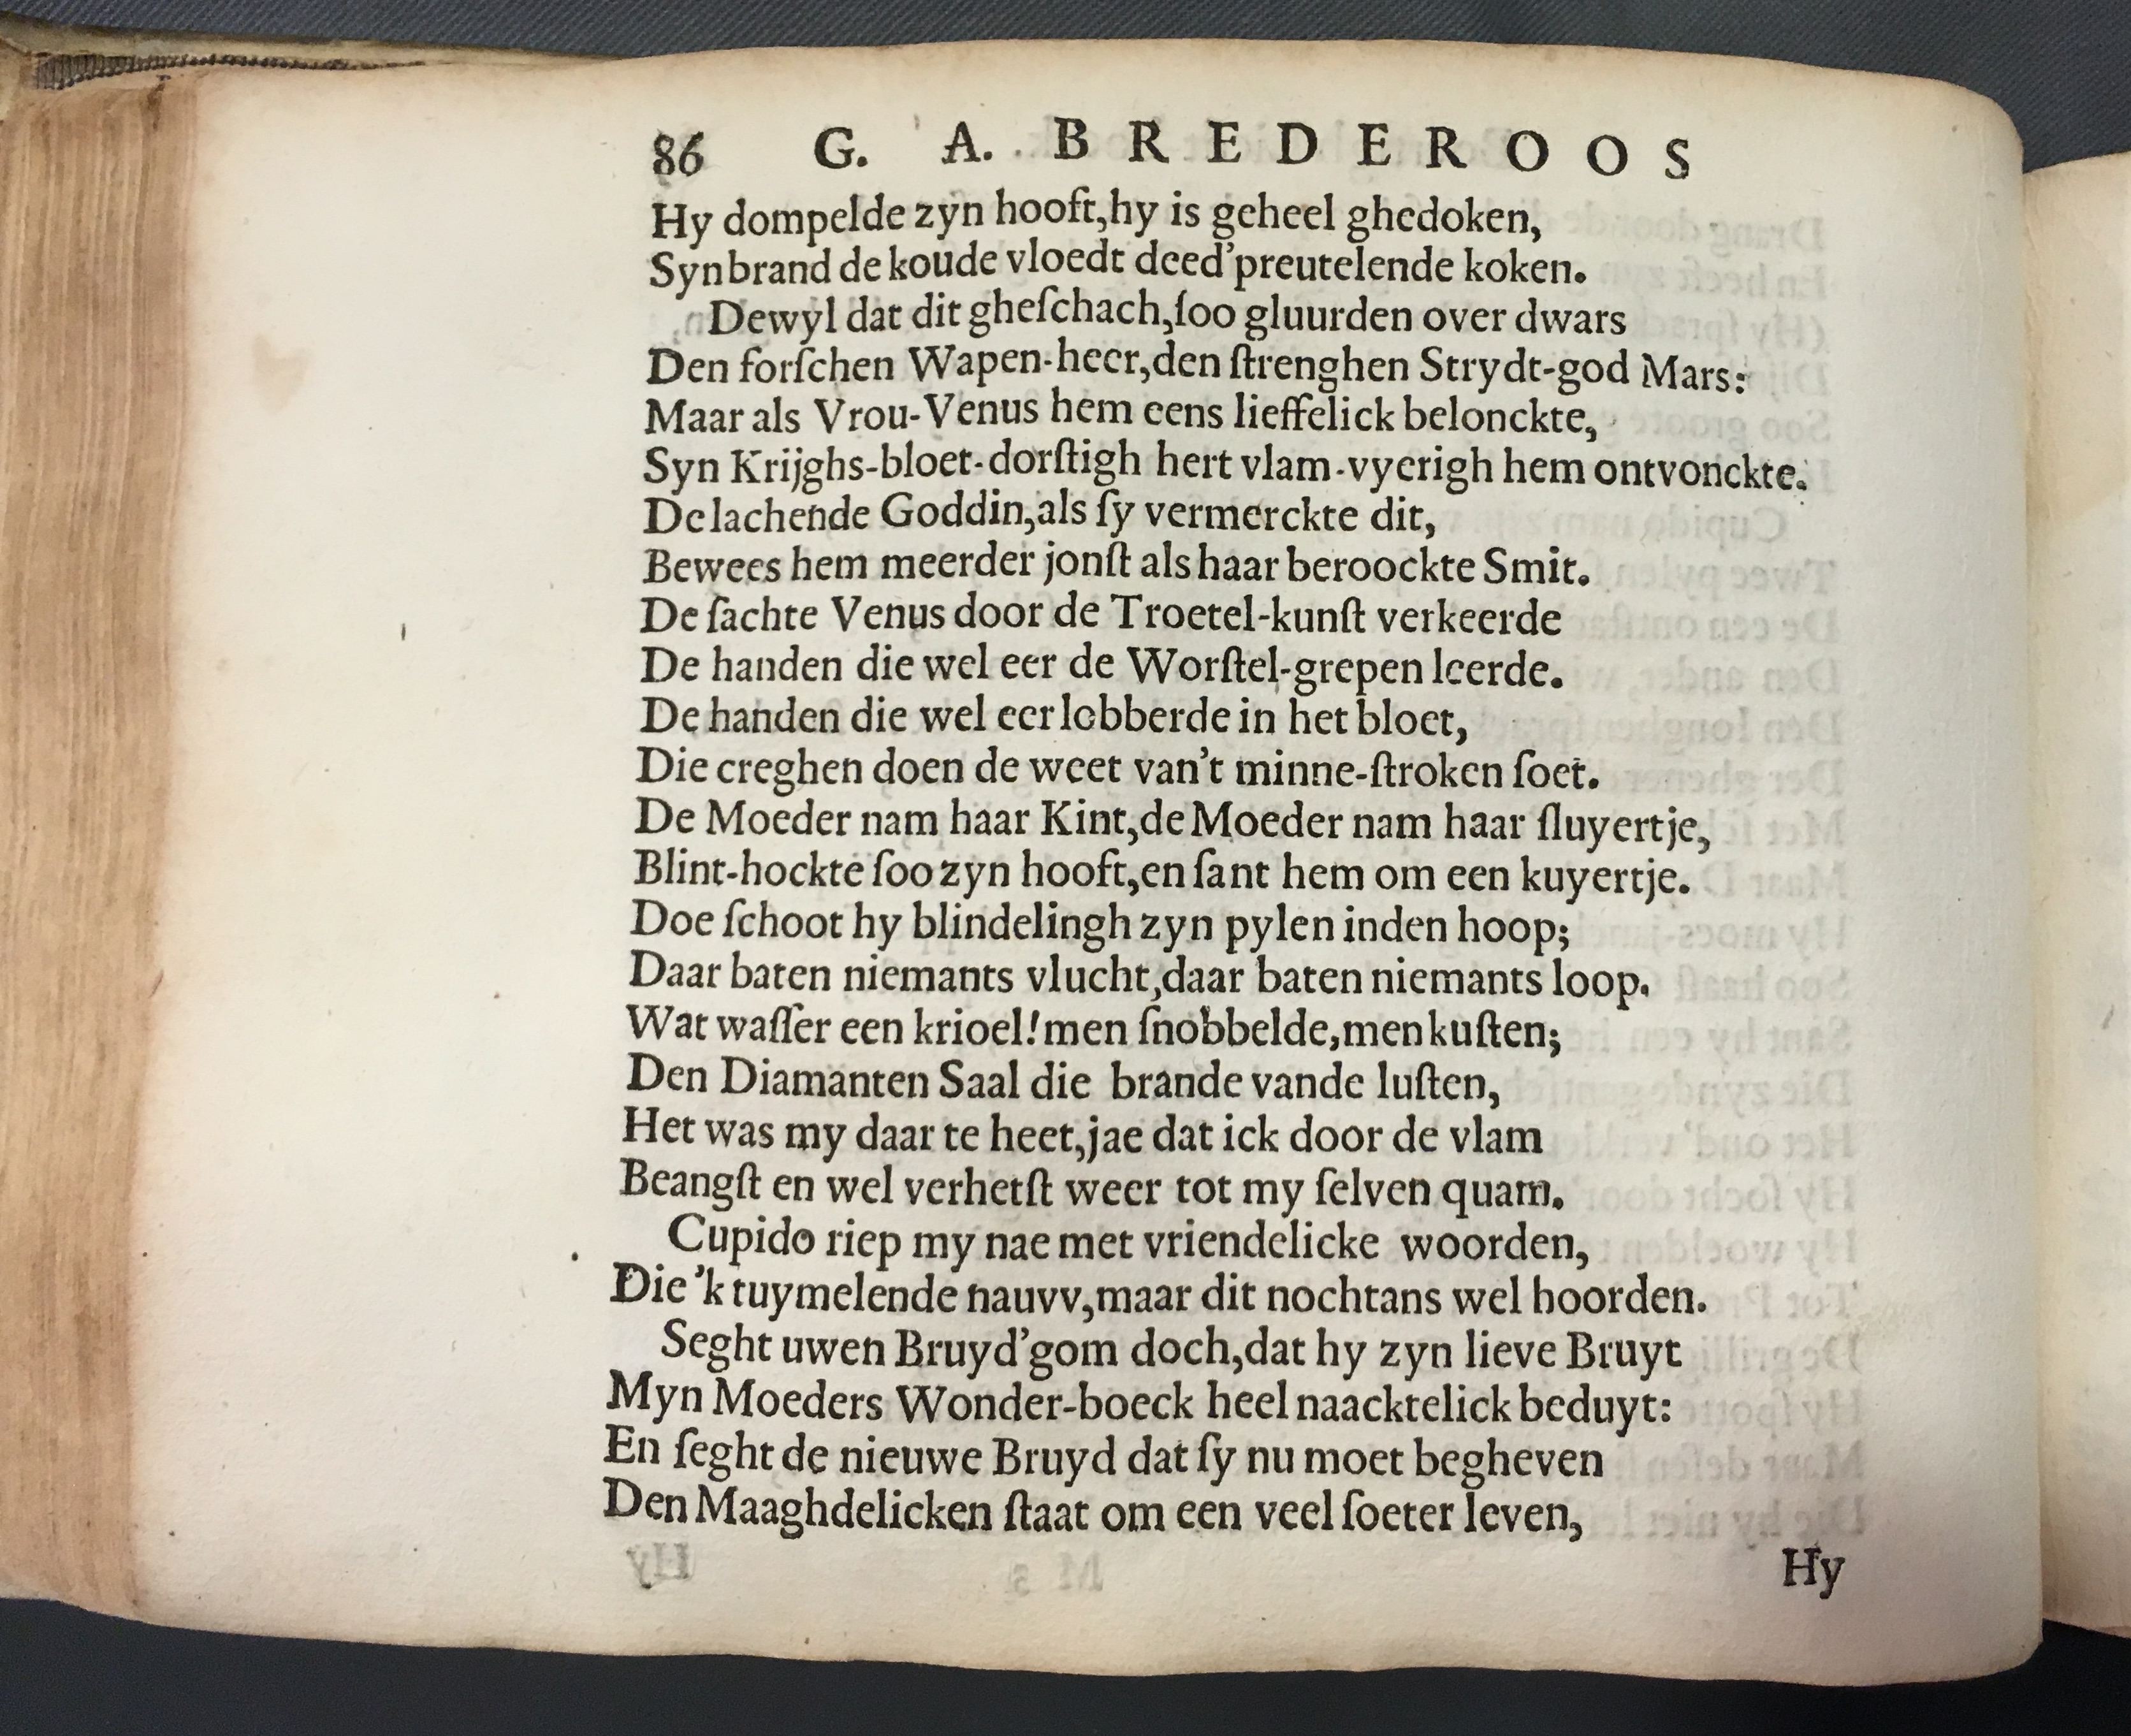 86 G. A. BREDEROOS
Hy dompelde zyn hooft, hy is geheel ghedoken,
Syn brand de koude vloedt deed' preutelende koken.
Dewyl dat dit gheſchach, ſoo gluurden over dwars
Den forſchen Wapen-heer, den ſtrenghen Strydt-god Mars:
Maar als Vrou-Venus hem eens lieffelick belonckte,
Syn Krijghs-bloet-dorſtigh hert vlam-vyerigh hem ontvonckte.
De lachende Goddin, als ſy vermerckte dit,
Bewees hem meerder jonſt als haar beroockte Smit.
De ſachte Venus door de Troetel-kunſt verkeerde
De handen die wel eer de Worſtel-grepen leerde.
De handen die wel eer lobberde in het bloet,
Die creghen doen de weet van't minne-ſtroken ſoet.
De Moeder nam haar Kint, de Moeder nam haar ſluyertje,
Blint-hockte ſoo zyn hooft, en ſant hem om een kuyertje.
Doe ſchoot hy blindelingh zyn pylen inden hoop;
Daar baten niemants vlucht, daar baten niemants loop.
Wat waſſer een krioel! men ſnobbelde, men kuſten;
Den Diamanten Saal die brande vande luſten,
Het was my daar te heet, jae dat ick door de vlam
Beangſt en wel verhetſt weer tot my ſelven quam.
Cupido riep my nae met vriendelicke woorden,
Die 'k tuymelende nauvv, maar dit nochtans wel hoorden.
Seght uwen Bruyd'gom doch, dat hy zyn lieve Bruyt
Myn Moeders Wonder-boeck heel naacktelick beduyt:
En ſeght de nieuwe Bruyd dat ſy nu moet begheven
Den Maaghdelicken ſtaat om een veel ſoeter leven,
Hy